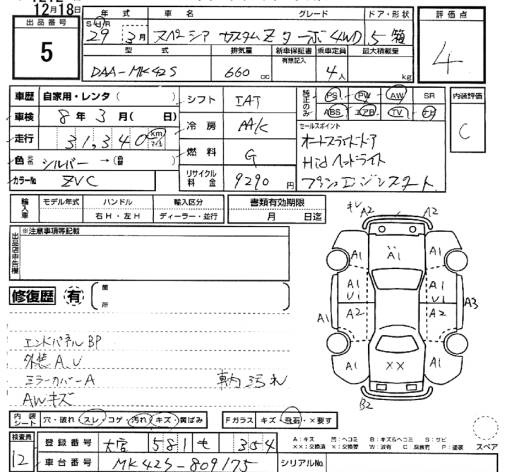 12月18日
出品番号
5
年式 車名 グレード ドア・形状
29年 3月 スペーシア カスタムZ ターボ4WD 5 箱
型式 排気量 新車保証書 乗車定員 最大積載量
有無記入
DAA-MK42S 660cc 4人 kg
評価点
4
車歴 自家用・レンタ( )
車検 8年3月( 日)
走行 31,340 km マイル
色 シルバー→( )
カラーNo ZVC
シフト IAT
冷房 AA/C
燃料 G
リサイクル料金 9290円
純正のみ
PS PW AW SR
ABS エアB TV
セールスポイント
オートスライドドア
Hidヘッドライト
プッシュエンジンスタート
内装評価
C
輸入車 モデル年式 ハンドル 輸入区分
右H・左H ディーラー・並行
書類有効期限
月 日迄
出品店申告欄
※注意事項等記載
修復歴 有
箇所
エンドパネルBP
外装A.U
ミラーカバーA
AWキズ
車内汚れ
A2 A2
A1 A1 A1
A1 U1 A1 U1
A1 A2 A2 A3
A1 XX A1
B2
内装シート 穴・破れ スレ・コゲ 汚れ・キズ・黄ばみ
Fガラス キズ・飛石・×要す
検査員
12
登録番号 大宮 581 せ 354
車台番号 MK42S-809175
シリアルNo.
スペア